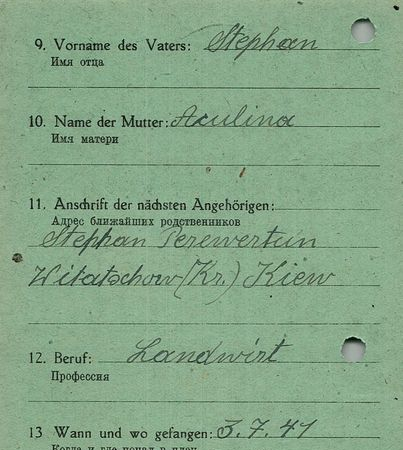 9. Vorname des Vaters: Stephan
Имя отца
10. Name der Mutter: Aculina
Имя матери
11. Anschrift der nächsten Angehörigen:
Адрес ближайших родственников
Stephan Perewertun
Witatschow (Kr.) Kiew
12. Beruf: Landwirt
Профессия
13 Wann und wo gefangen: 3.7.41
Когда и где попал в плен